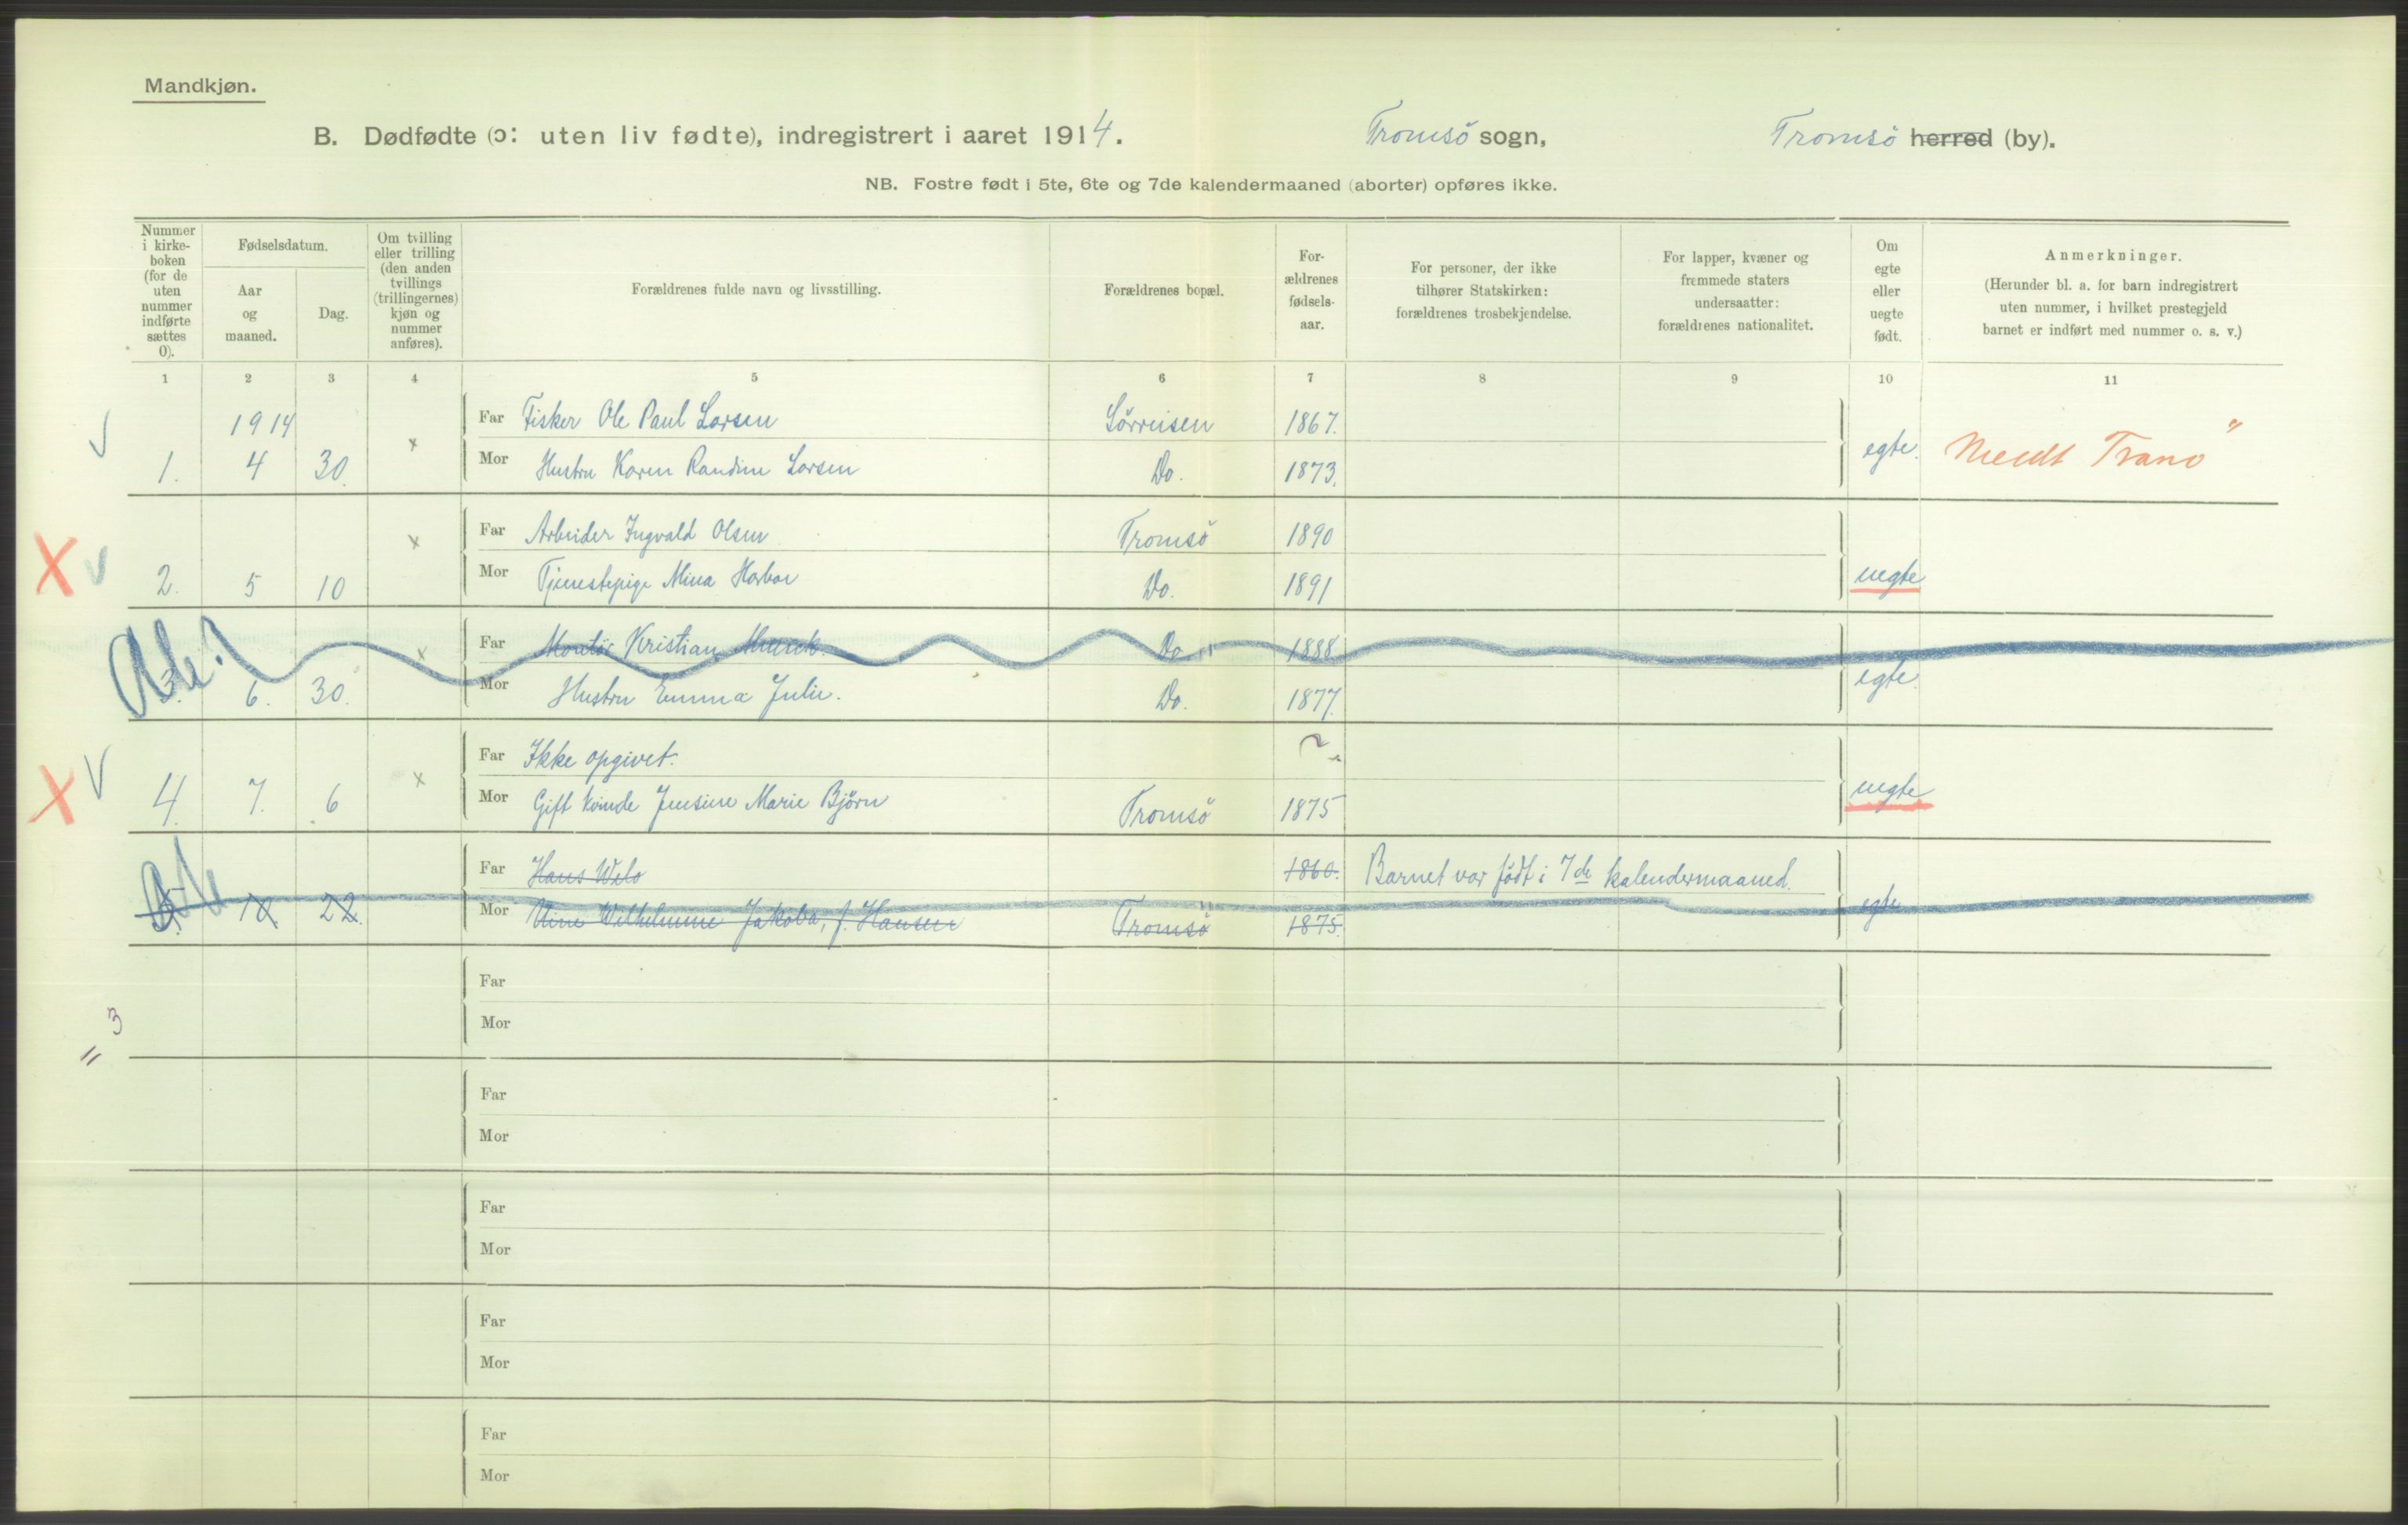 Mandkjøn.
B. Dødfødte (ɔ: uten liv fødte), indregistrert i aaret 1914. Tromsö sogn, Tromsö herred (by).
NB. Fostre født i 5te, 6te og 7de kalendermaaned (aborter) opføres ikke.
Nummer i kirke-boken (for de uten nummer indførte sættes 0).
Fødselsdatum.
Aar og maaned.
Dag.
Om tvilling eller trilling (den anden tvillings (trillingernes) kjøn og nummer anføres).
Forældrenes fulde navn og livsstilling.
Forældrenes bopæl.
For-ældrenes fødsels-aar.
For personer, der ikke tilhører Statskirken: forældrenes trosbekjendelse.
For lapper, kvæner og fremmede staters undersaatter: forældrenes nationalitet.
Om egte eller uegte født.
Anmerkninger.
(Herunder bl. a. for barn indregistrert uten nummer, i hvilket prestegjeld barnet er indført med nummer o. s. v.)
1 2 3 4 5 6 7 8 9 10 11
1914 x Far Fisker Ole Paul Larsen Sörreisen 1867.
1. 4 30. Mor Hustru Karen Randine Larsen Do. 1873. egte. Meldt Tranö
x Far Arbeider Ingvald Olsen Tromsö 1890
2. 5 10 Mor Tjenestepige Mina Do. 1891 uegte
x Far Montör Kristian Munck. Do 1888
3. 6. 30. Mor Hustru Emma Julie. Do. 1877. egte.
x Far Ikke opgivet.
4. 7. 6 Mor Gift kvinde Jensine Marie Björn Tromsö 1875 uegte
Far Hans Welo 1860. Barnet var födt i 7de kalendermaaned.
5. 10 22. Mor Wilhelmine Jakoba, f. Hansen Tromsö 1875. egte
Far
3
Mor
=
Far
Mor
Far
Mor
Far
Mor
Far
Mor